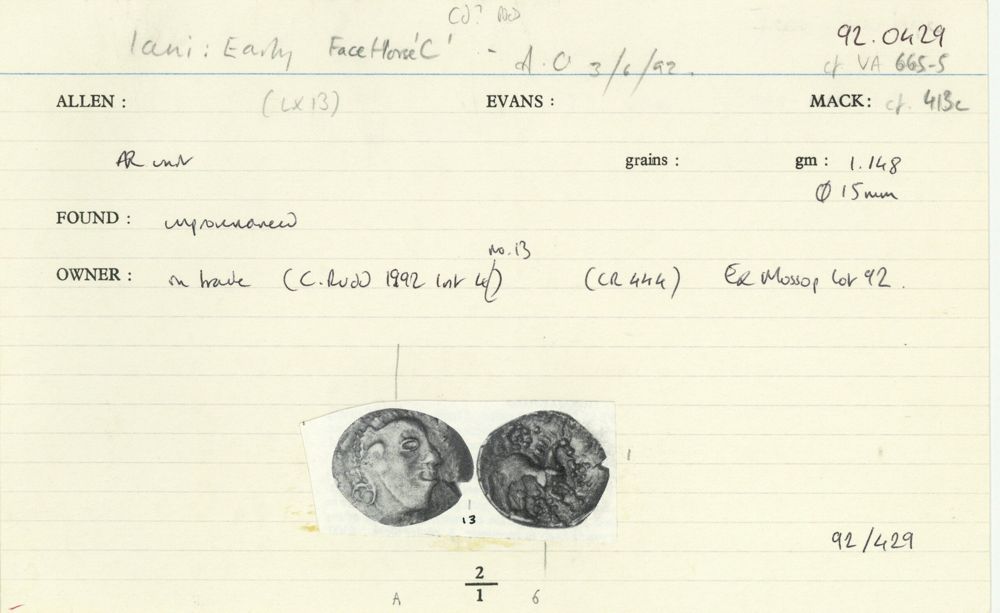 Cd?
92.0429
Iceni: Early Face Horse 'C' - d.O 3/6/92.
cf VA 665-5
ALLEN : (LX 13) EVANS : MACK: cf. 413c
AR unit grains : gm : 1.148
Ø 15mm
FOUND : unprovenanced
no. 13
OWNER : in trade (C. Rudd 1992 list 4) (CR 444) Ex Mossop lot 92.
1
13
92/429
2
1
A 6